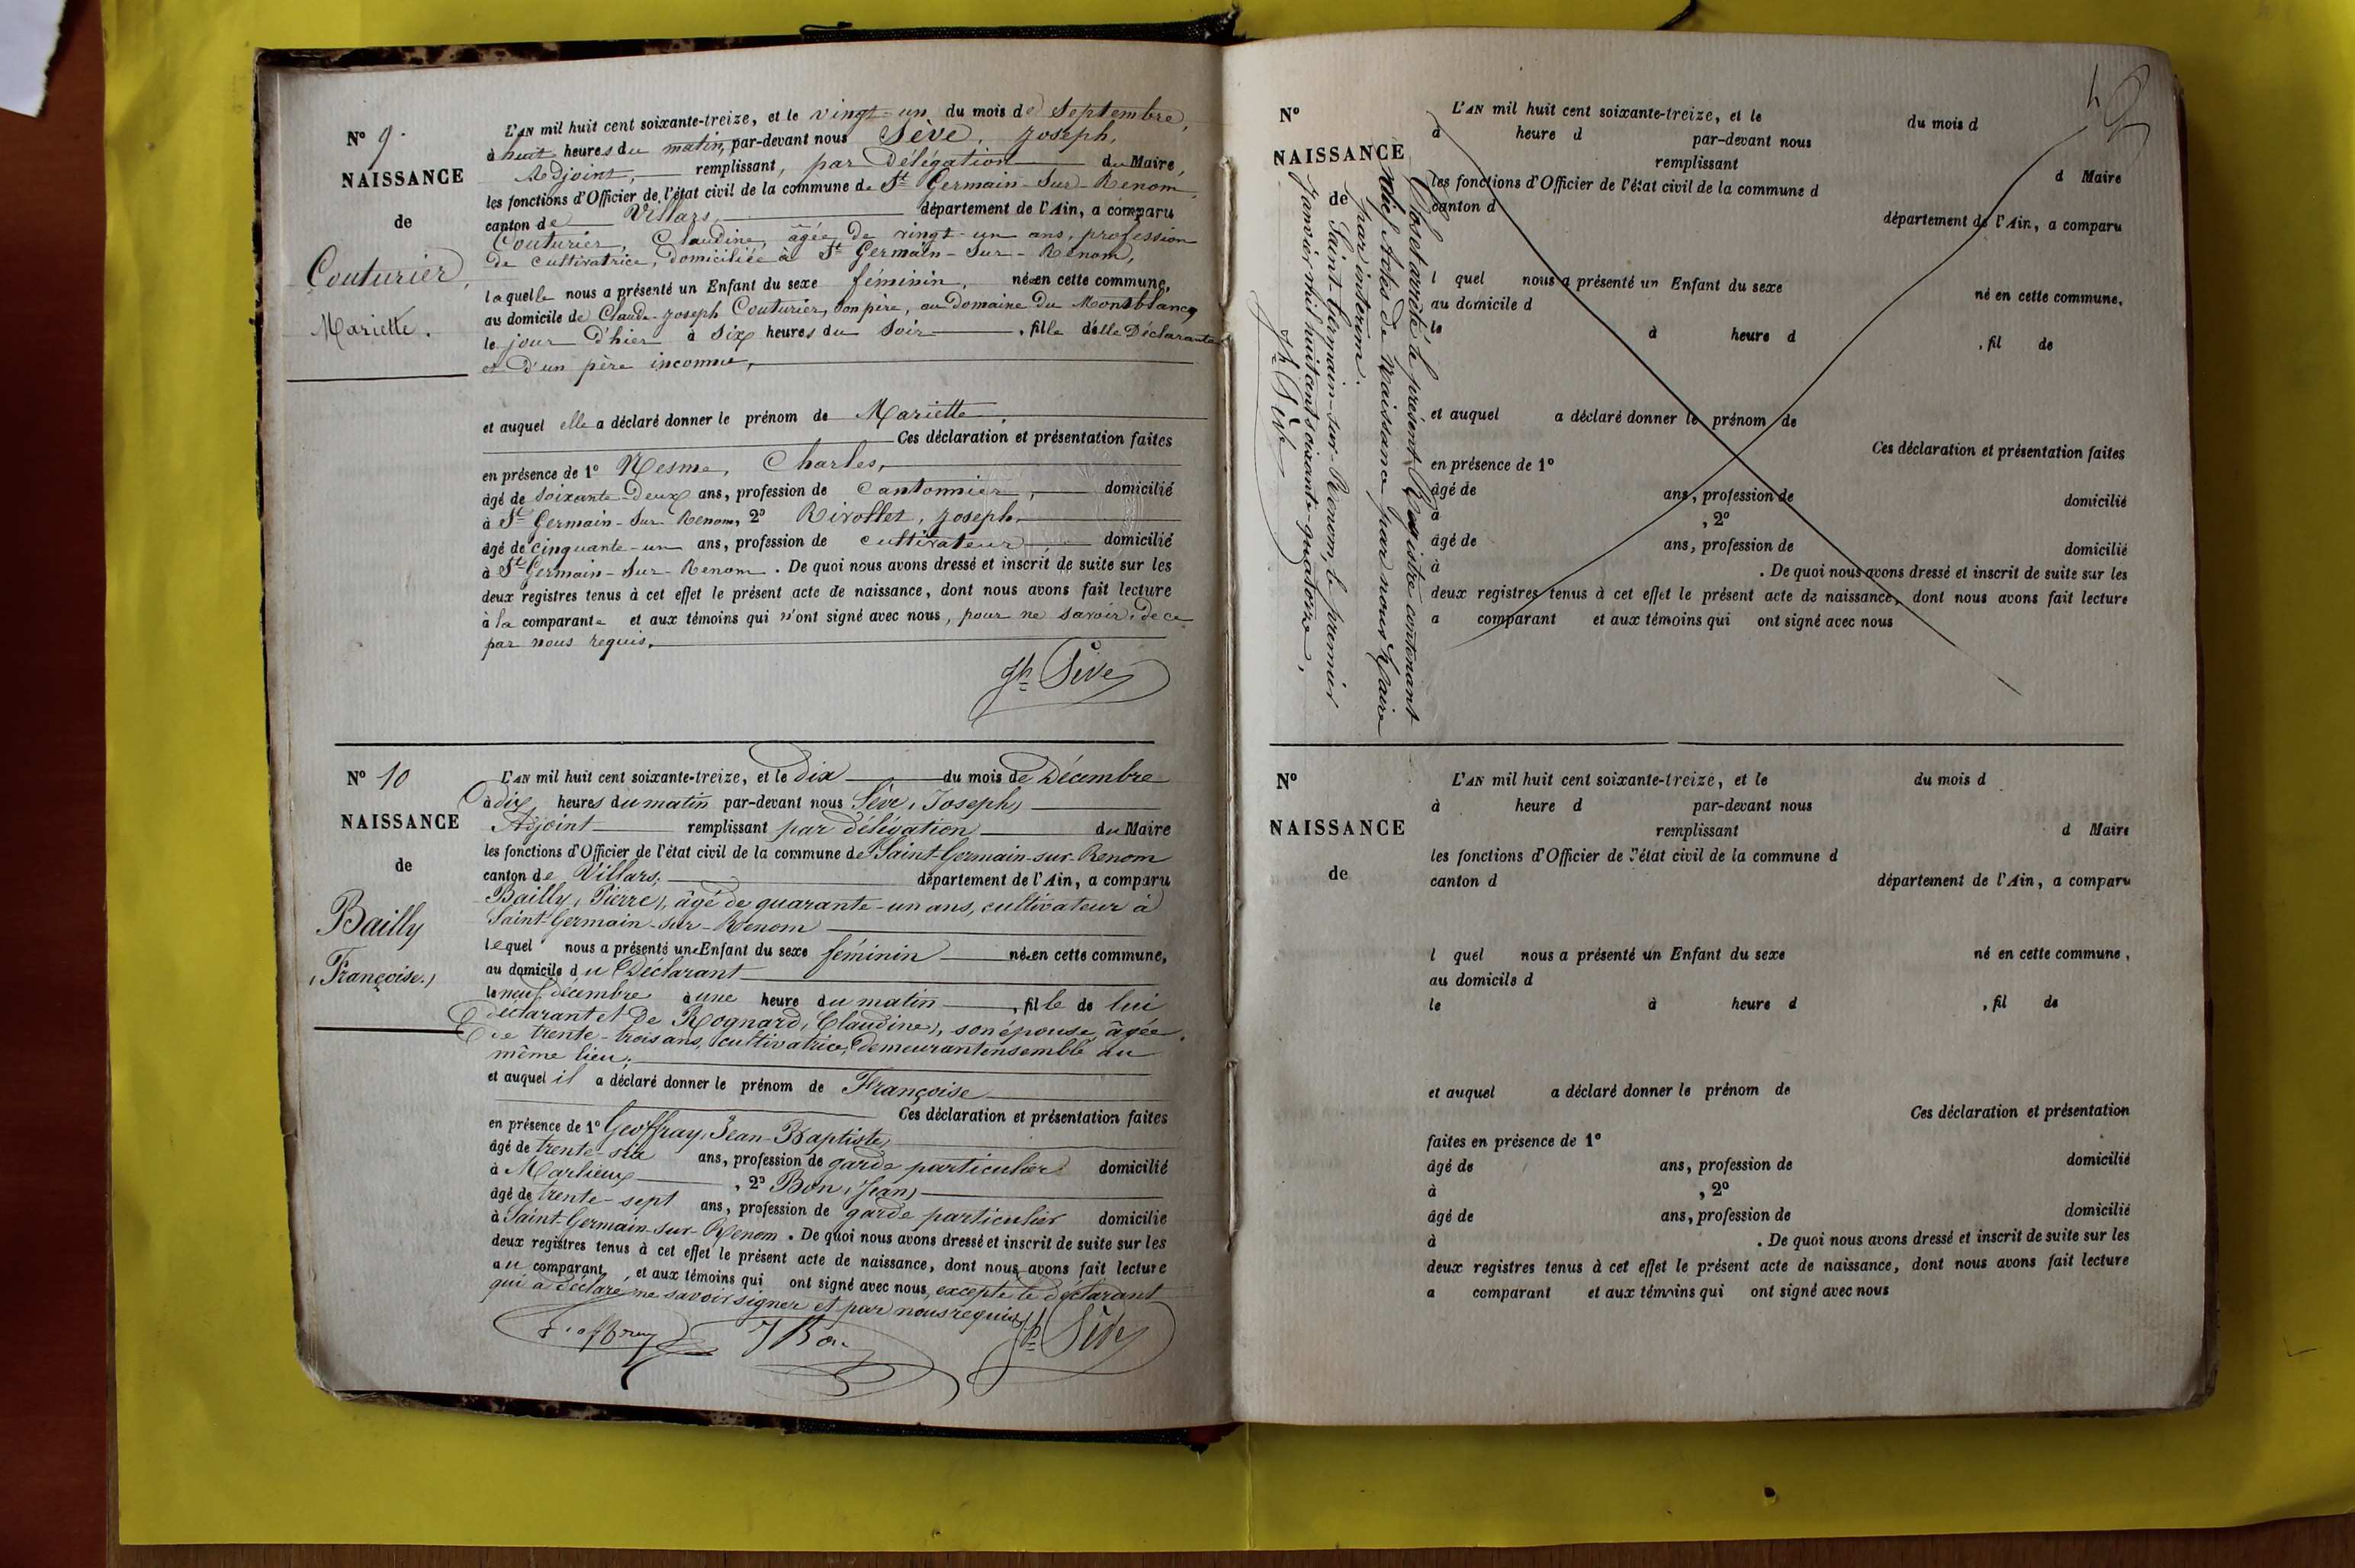 N° 9.
NAISSANCE
de
Couturier,
Mariette.
L'AN mil huit cent soixante-treize, et le vingt-un du mois de Septembre,
à huit heures du matin, par-devant nous Sève, Joseph,
Adjoint, remplissant, par Délégation du Maire,
les fonctions d'Officier de l'état civil de la commune de St Germain-Sur-Renom
canton de Villars, département de l'Ain, a comparu
Couturier, Claudine, âgée de vingt-un ans, profession
de cultivatrice, domiciliée à St Germain-Sur-Renom,
laquelle nous a présenté un Enfant du sexe féminin, née en cette commune,
au domicile de Claude-Joseph Couturier, son père, au Domaine du Montblanc,
le jour d'hier à six heures du soir, fille d'elle Déclarante
et d'un père inconnu,
et auquel elle a déclaré donner le prénom de Mariette.
Ces déclaration et présentation faites
en présence de 1° Nesme, Charles,
âgé de soixante-deux ans, profession de cantonnier, domicilié
à St Germain-Sur-Renom, 2° Rivollet, Joseph,
âgé de cinquante-un ans, profession de cultivateur, domicilié
à St Germain-Sur-Renom. De quoi nous avons dressé et inscrit de suite sur les
deux registres tenus à cet effet le présent acte de naissance, dont nous avons fait lecture
à la comparante et aux témoins qui n'ont signé avec nous, pour ne savoir, de ce
par nous requis.
Jh Sève
N° 10
NAISSANCE
de
Bailly
(Françoise.)
L'AN mil huit cent soixante-treize, et le dix du mois de Décembre
à dix heures du matin par-devant nous Sève, (Joseph)
Adjoint remplissant par délégation du Maire
les fonctions d'Officier de l'état civil de la commune de Saint-Germain-sur-Renom
canton de Villars, département de l'Ain, a comparu
Bailly, (Pierre), âgé de quarante-un ans, cultivateur à
Saint-Germain-sur-Renom
lequel nous a présenté une Enfant du sexe féminin née en cette commune,
au domicile du Déclarant
le neuf décembre à une heure du matin, fille de lui
déclarant et de Rognard, (Claudine), son épouse, âgée
de trente-trois ans, cultivatrice, demeurant ensemble au
même lieu.
et auquel il a déclaré donner le prénom de Françoise
Ces déclaration et présentation faites
en présence de 1° Geoffray, Jean-Baptiste,
âgé de trente-six ans, profession de garde particulier domicilié
à Marlieux, 2° Bon, (Jean)
âgé de trente-sept ans, profession de garde particulier domicilié
à Saint-Germain-sur-Renom. De quoi nous avons dressé et inscrit de suite sur les
deux registres tenus à cet effet le présent acte de naissance, dont nous avons fait lecture
au comparant, et aux témoins qui ont signé avec nous, excepté le déclarant
qui a déclaré ne savoir signer et par nous requis.
Geoffray J Bon Jh Sève
N°
NAISSANCE
de
Clos et arrêté le présent Registre contenant
dix Actes de Naissance par nous Maire
par intérim.
Saint-Germain-sur-Renom, le premier
Janvier mil huit cent soixante-quatorze,
Jh Sève
L'AN mil huit cent soixante-treize, et le du mois d
à heure d par-devant nous
remplissant d Maire
les fonctions d'Officier de l'état civil de la commune d
canton d département de l'Ain, a comparu
l quel nous a présenté un Enfant du sexe né en cette commune,
au domicile d
le à heure d , fil de
et auquel a déclaré donner le prénom de
Ces déclaration et présentation faites
en présence de 1°
âgé de ans, profession de domicilié
à , 2°
âgé de ans, profession de domicilié
à . De quoi nous avons dressé et inscrit de suite sur les
deux registres tenus à cet effet le présent acte de naissance, dont nous avons fait lecture
a comparant et aux témoins qui ont signé avec nous
N°
NAISSANCE
de
L'AN mil huit cent soixante-treize, et le du mois d
à heure d par-devant nous
remplissant d Maire
les fonctions d'Officier de l'état civil de la commune d
canton d département de l'Ain, a comparu
l quel nous a présenté un Enfant du sexe né en cette commune,
au domicile d
le à heure d , fil de
et auquel a déclaré donner le prénom de
Ces déclaration et présentation
faites en présence de 1°
âgé de ans, profession de domicilié
à , 2°
âgé de ans, profession de domicilié
à . De quoi nous avons dressé et inscrit de suite sur les
deux registres tenus à cet effet le présent acte de naissance, dont nous avons fait lecture
a comparant et aux témoins qui ont signé avec nous